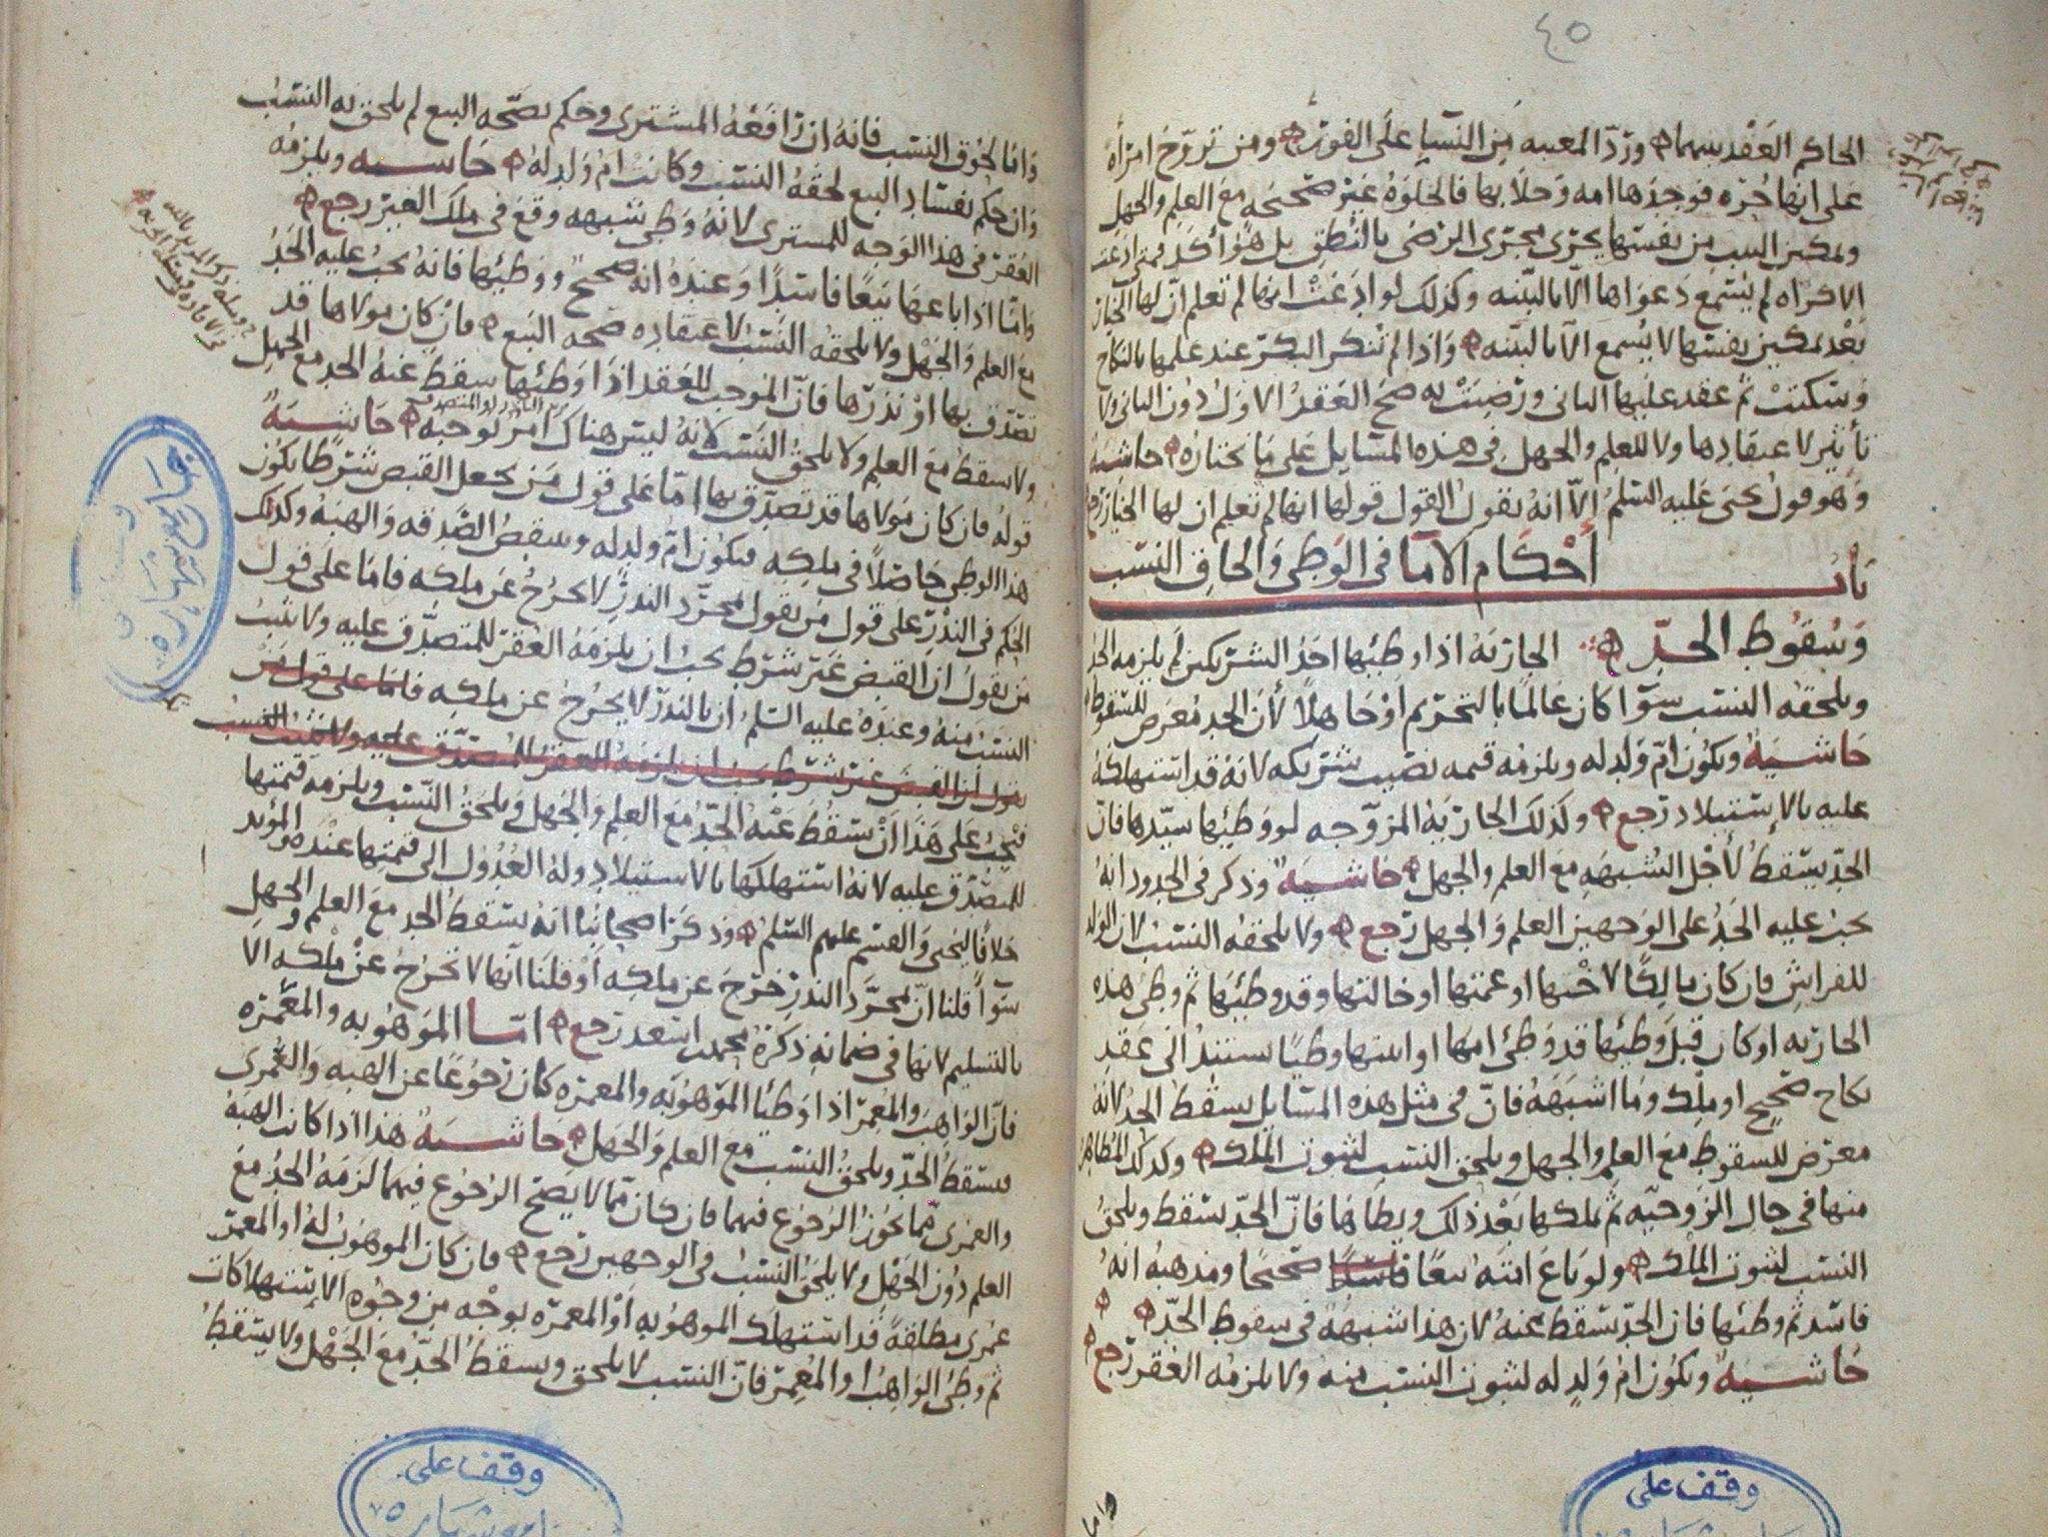 ٤٥
الحاكم العقد بينهما ورد المعيبه من النسا على الفور ومن تزوج امرأه
على انها حره فوجدها امه وخلا بها فالخلوه غير صحيحه مع العلم والجهل
وتمكين الثيب من نفسها يجرى مجرى الرضى بالنطق بل هو أكد فمتى ادعت
الاكراه لم يسمع دعواها الا بالبينه وكذلك لو ادعت انها لم تعلم ان لها الخيار
بعد تمكين نفسها لا يسمع الا بالبينه واذا لم تنكر البكر عند علمها بالنكاح
وسكتت ثم عقد عليها الثانى ورضيت به صح العقد الاول دون الثانى ولا
تأثير لاعتقادها ولا للعلم والجهل فى هذه المسايل على ما نختاره حاشية
وهو قول يحيى عليه السلم الا انه يقول القول قولها انها لم تعلم ان لها الخيار رجع
باب أحكام الاما فى الوطى والحاق النسب
وسقوط الحد الجاريه اذا وطئها احد الشريكين لم يلزمه الحد
ويلحقه النسب سوا كان عالما بالتحريم او جاهلا لأن الحد معرض للسقوط
حاشية وتكون ام ولد له ويلزمه قيمه نصيب شريكه لانه قد استهلكه
عليه بالاستيلاد رجع وكذلك الجاريه المزوجه لو وطئها سيدها فان
الحد يسقط لأجل الشبهه مع العلم والجهل حاشية وذكر فى الحدود انه
يجب عليه الحد على الوجهين العلم والجهل رجع ولا يلحقه النسب لان الولد
للفراش فان كان مالكا لاختها او عمتها او خالتها وقد وطئها ثم وطى هذه
الجاريه او كان قبل وطئها قد وطئ امها او ابنتها وطيا يستند الى عقد
نكاح صحيح او ملك وما اشبهه فان فى مثل هذه المسايل يسقط الحد لانه
معرض للسقوط مع العلم والجهل ويلحق النسب لثبوت الملك وكذلك المظاهر
منها فى حال الزوجيه ثم يملكها بعد ذلك ويطاها فان الحد يسقط ويلحق
النسب لثبوت الملك ولو باع امته بيعا فاسدا صحيحا ومذهبه انه
فاسد ثم وطئها فان الحد سقط عنه لان هذا شبهة فى سقوط الحد
حاشية وتكون ام ولد له لثبوت النسب منه ولا يلزمه العقر رجع
واما
واما لحوق النسب فانه ان رافعه المشترى وحكم بصحه البيع لم يلحق به النسب
وان حكم بفساد البيع لحقه النسب وكانت ام ولد له حاشيه ويلزمه
العقر فى هذا الوجه للمشترى لانه وطى شبهه وقع فى ملك الغير رجع
واما اذا باعها بيعا فاسدا وعنده انه صحيح ووطئها فانه يجب عليه الحد
مع العلم والجهل ولا يلحقه النسب لاعتقاده صحه البيع فان كان مولاها قد
تصدق بها او نذرها فان الموجب للعقد اذا وطئها سقط عنه الحد مع الجهل
ولا يسقط مع العلم ولا يلحق النسب لانه ليس هناك امر توجبه حاشية
قوله فان كان مولاها قد تصدق بها اما على قول من يجعل القبض شرطا يكون
هذا الوطى حاصلا فى ملكه فتكون ام ولد له وينقض الصدقه والهبه وكذلك
الحكم فى النذر على قول من يقول بمجرد النذر لا يخرج عن ملكه فاما على قول
من يقول ان القبض غير شرط يجب ان يلزمه العقر للمتصدق عليه ولا يثبت
النسب منه وعنده عليه السلم ان بالنذر لا يخرج عن ملكه فاما على قول من
يقول ان القبض غير شرط يجب ان يلزمه العقر للمتصدق عليه ولا يثبت النسب
فيجب على هذا أن يسقط عنه الحد مع العلم والجهل ويلحق النسب ويلزمه قيمتها
للمتصدق عليه لانه استهلكها بالاستيلاد وله العدول الى قيمتها عنده والمؤيد
خلافا ليحيى والقسم عليهم السلم وذكر اصحابنا انه يسقط الحد مع العلم والجهل
سوآ قلنا ان بمجرد النذر خرج عن ملكه او قلنا انها لا تخرج عن ملكه الا
بالتسليم لانها فى ضمانه ذكره محمد اسعد رجع اما الموهوبه والمعمره
فان الواهب والمعمر اذا وطئا الموهوبه والمعمره كان رجوعا عن الهبه والعمرى
فيسقط الحد ويلحق النسب مع العلم والجهل حاشية هذا اذا كانت الهبه
والعمرى مما يجوز الرجوع فيهما فان كان مما لا يصح الرجوع فيهما لزمه الحد مع
العلم دون الجهل ولا يلحق النسب فى الوجهين رجع فان كان الموهوب له او المعمر
عمرى مطلقة قد استهلك الموهوبه او المعمره بوجه من وجوه الاستهلاكات
ثم وطئ الواهب او المعمر فان النسب لا يلحق ويسقط الحد مع الجهل ولا يسقط
وقف على
وقف على